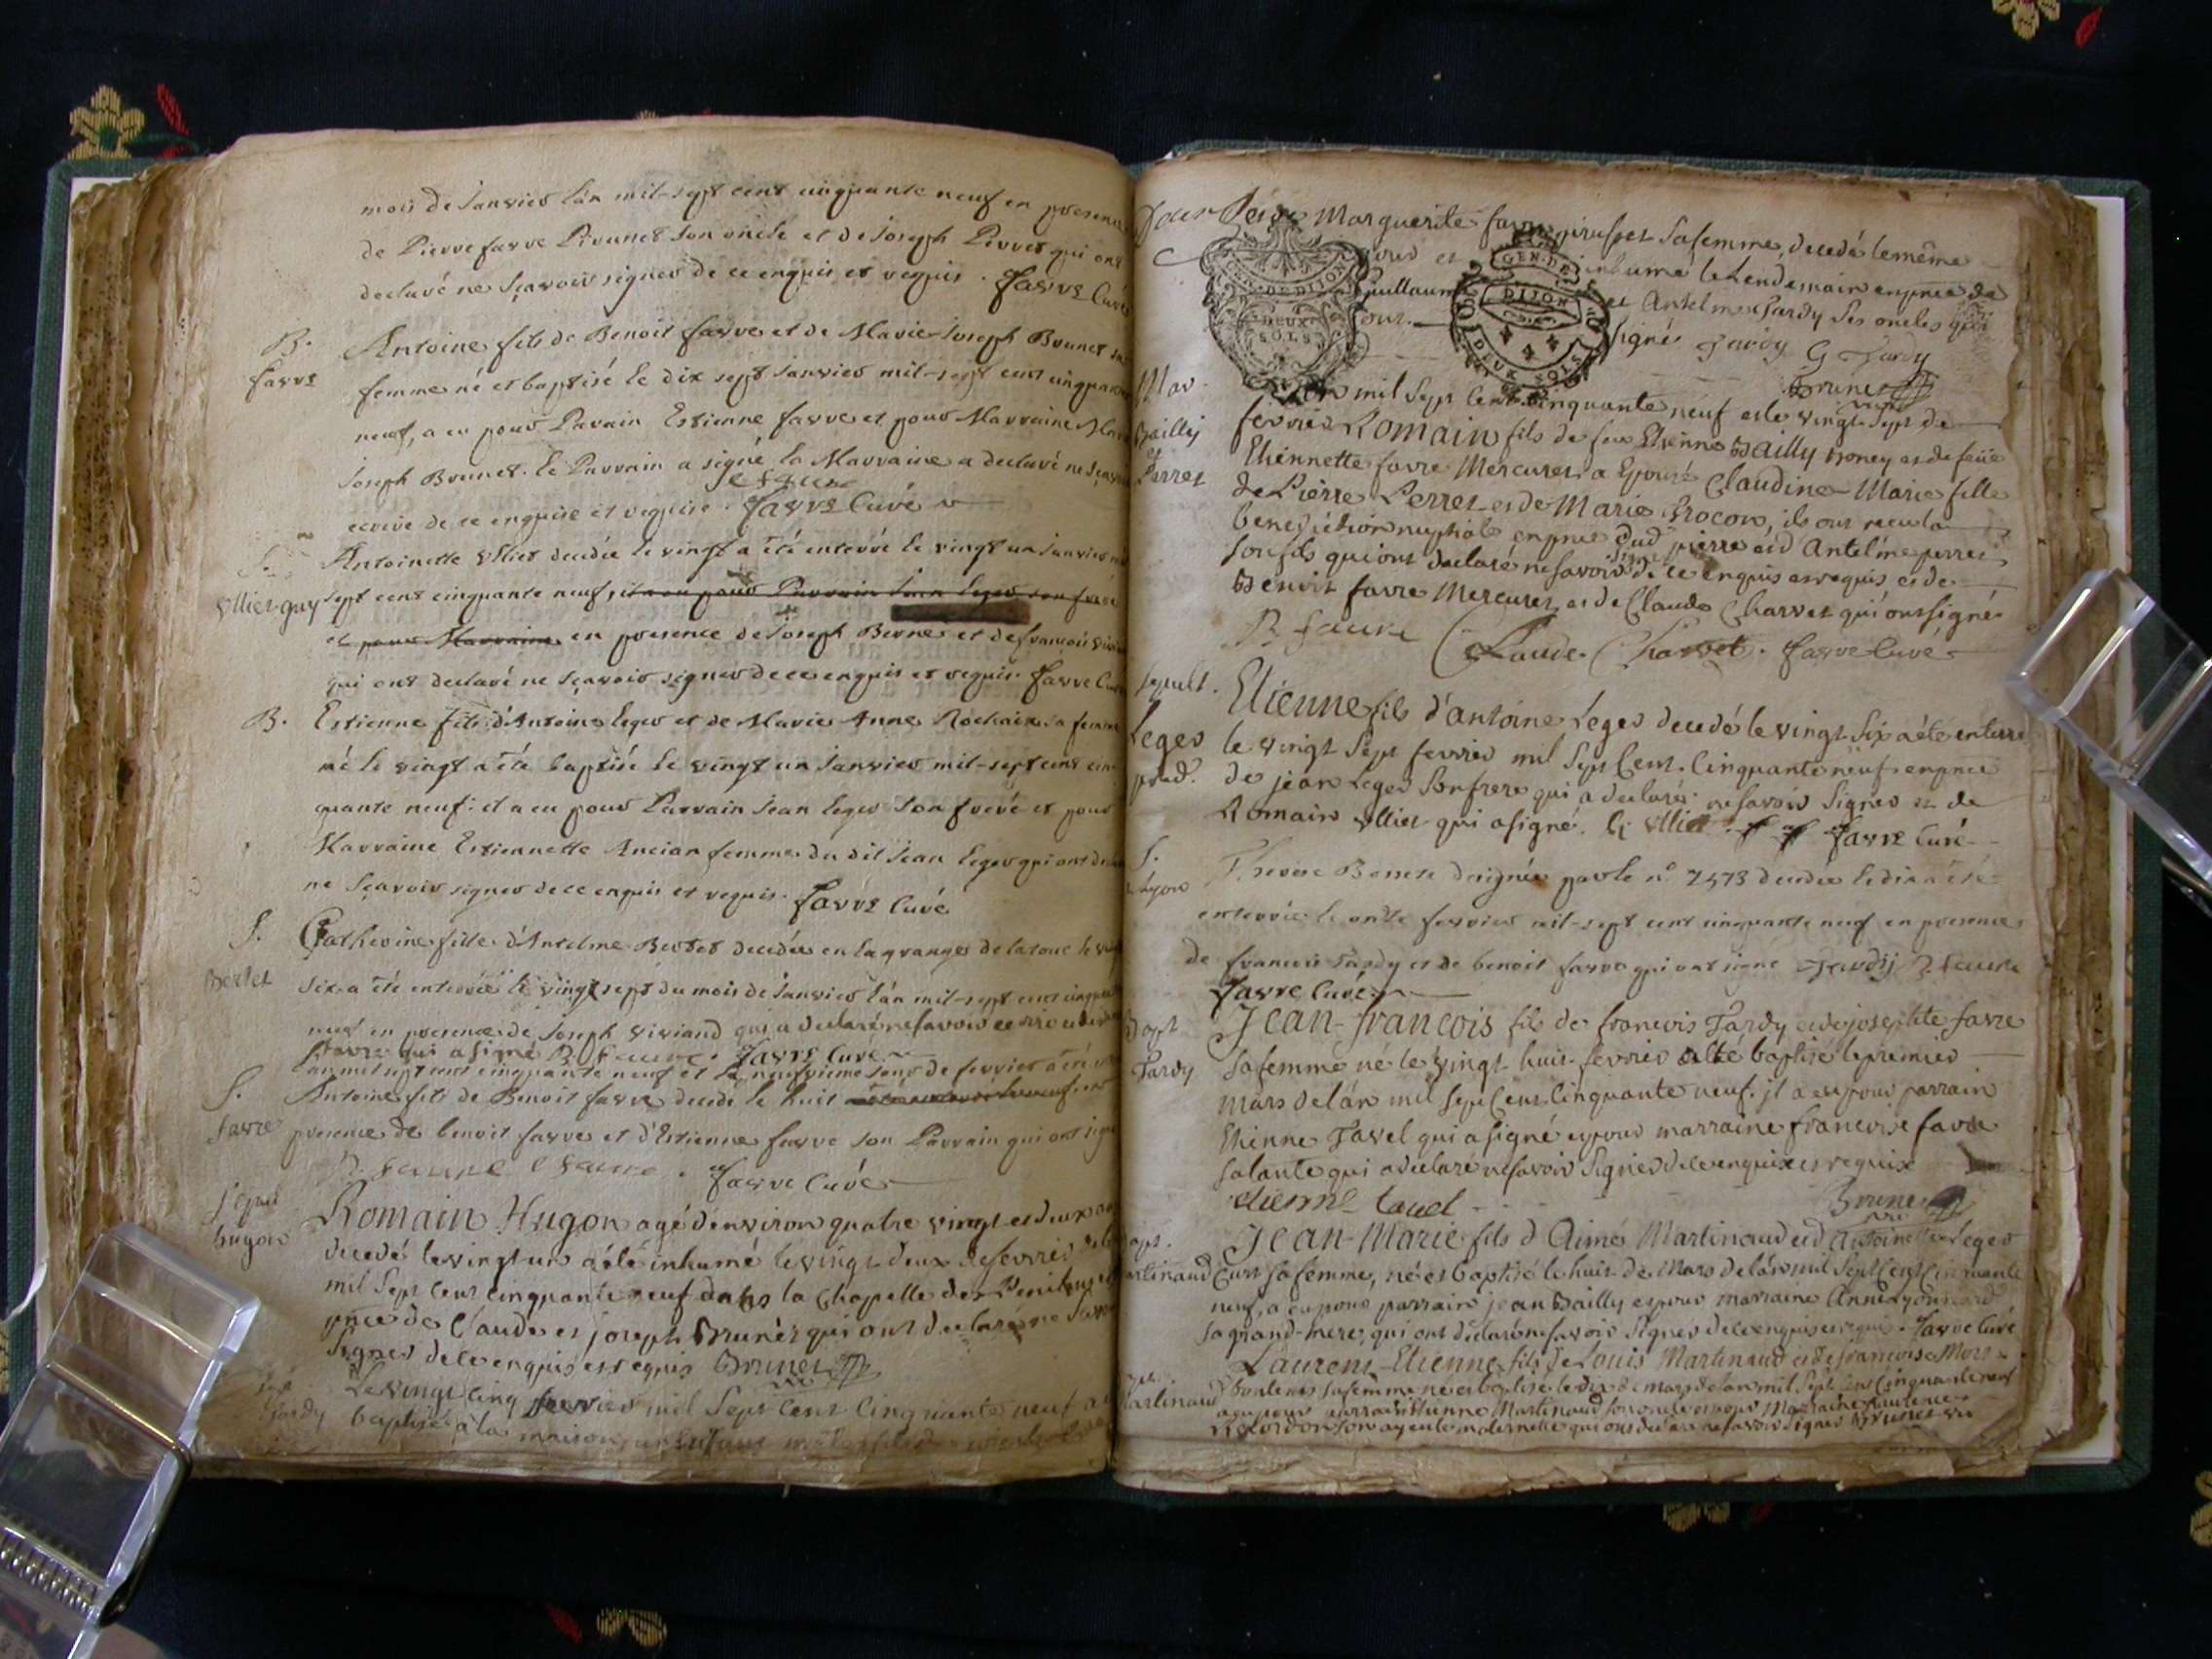 mois de Janvier l'an mil-sept cent cinquante neuf en presence
de Pierre favre Brunet son oncle et de Joseph Perret qui ont
declaré ne sçavoir signer de ce enquis et requis. favre Curé
B.
favre
Antoine fils de Benoit favre et de Marie-Joseph Brunet sa
femme né et baptisé le dix sept Janvier mil-sept cent cinquante
neuf, a eu pour Parain Estienne favre et pour Marraine Marie
Joseph Brunet. le Parrain a signé la Marraine a declaré ne sçavoir
e faure
ecrire de ce enquise et requise. favre Curé
S.
ulliet-guy
Antoinette Ulliet decedée le vingt a été enterré le vingt un Janvier mil
sept cent cinquante neuf, il a eu pour Parrain Jean Leger son frere
et pour Marraine en presence de Joseph Berne et de françois
qui ont declaré ne sçavoir signer de ce enquis et requis favre Curé
B.
Estienne fils d'Antoine Leger et de Marie Anne Rochaix sa femme
né le vingt a été baptisé le vingt un Janvier mil-sept cent cin
quante neuf: il a eu pour Parrain Jean Leger son frere et pour
Marraine Estiennette Ancian femme du dit Jean Leger qui ont declaré
ne sçavoir signer de ce enquis et requis. favre Curé
S.
Bertet
Catherine fille d'Antelme Bertet decedée en la grange de la tour le vingt
six a été enterrée le vingt sept du mois de Janvier l'an mil-sept cent cinquante
neuf en presence de Joseph Viviand qui a declaré ne savoir
favre qui a signé B. faure. favre Curé
l'an mil sept cent cinquante neuf et le neufvieme jour de fevrier a été
S.
favre
Antoine fils de Benoit favre decedé le huit
presence de benoit favre et d'Estienne favre son Parrain qui ont signé
B. faure e faure. favre Curé
Sepul
hugon
Romain Hugon agé d'environ quatre vingt et deux ans
decedé le vingt un a été inhumé le vingt deux de fevrier
mil Sept Cent Cinquante neuf dans la Chapelle des Penitens
pnce de Claude et joseph Brunet qui ont declaré ne savoir
Signer de ce enquis et requis Brunet vic
bapt
Tardy
Le vingt cinq fevrier mil Sept Cent Cinquante neuf a
baptisé à la maison un enfant
Marguerite favre sa femme, decedé le même
jour et inhumé le lendemain en pnce de
Guillaume et Antelme Tardy ses oncles qui
ont signé Tardy G Tardy
Brunet vic
GEN. DE DIJON
DEUX SOLS
GEN. DE
DIJON
DEUX SOLS
Mar.
Bailly
et
Perret
L'an mil Sept Cent Cinquante neuf et le vingt Sept de
fevrier Romain fils de feu Etienne Bailly honey et de feüe
Etiennette favre Mercuret a Epousé Claudine-Marie fille
de Pierre Perret et de Marie Brocon, ils ont recu la
benediction nuptiale en pnce dud pierre et d Antelme perret
son fils qui ont declaré ne savoir signer de ce enquis et requis et de
Benoit favre Mercuret et de Claude Charvet qui ont signé
B. faure Claude Charvet. favre Curé
sepult.
Leger
Etienne fils d'antoine Leger decedé le vingt Six a été enterré
le vingt Sept fevrier mil Sept Cent Cinquante neuf en pnce
de jean Leger son frere qui a declaré ne savoir Signer et de
Romain Ulliet qui a signé. favre Curé
S.
Therese Bonnete designée par le n.º 7573 decedée le dix a été
enterrée le onze fevrier mil-sept cent cinquante neuf en presence
de francois Tardy et de benoit favre qui ont signé Tardy B. faure
favre Curé
Bapt
Tardy
Jean-francois fils de francois Tardy et de josephte favre
sa femme né le vingt huit fevrier a été baptisé le premier
mars de l'an mil Sept Cent Cinquante neuf. il a eu pour parrain
Etienne Tavel qui a signé et pour marraine francoise favre
sa tante qui a declaré ne savoir Signer de ce enquise et requise
etienne tavel
Brunet vic
bapt.
Martinaud
Jean-Marie fils d Aimé Martinaud et d Antoinette Leger
sa femme, né et baptisé le huit de Mars de l'an mil Sept Cent Cinquante
neuf, a eu pour parrain jean Bailly et pour marraine Anne
sa grand-mere, qui ont declaré ne savoir Signer de ce enquis et requis. favre Curé
Martinaud
Laurent-Etienne fils de Louis Martinaud et de francoise
sa femme né et baptisé le dix de mars de l'an mil Sept Cent Cinquante neuf
a eu pour parrain Etienne Martinaud son oncle et pour Marraine
son ayeule maternelle qui ont declaré ne savoir Signer Brunet vic